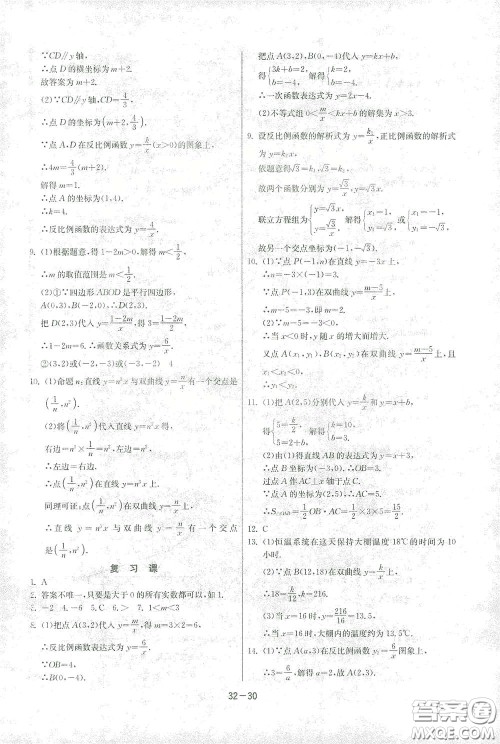 ∵CD∥y轴,
∴点D的横坐标为m+2.
故答案为m+2.
(2)∵CD∥y轴,CD=4/3,
∴点D的坐标为(m+2, 4/3),
∵A,点D在反比例函数y=k/x(x>0)的图象上,
∴4m=4/3(m+2).
解得m=1.
∴点A的坐标为(1,4).
∴k=4.
∴反比例函数的表达式为y=4/x.
9. (1)根据题意,得1-2m>0,解得m<1/2.
∴m的取值范围是m<1/2.
(2)①∵四边形ABOD是平行四边形,
A(0,3),B(-2,0),∴D(2,3).
把D(2,3)代入y=(1-2m)/x,得3=(1-2m)/2.
∴1-2m=6.∴函数关系式为y=6/x
②(3,2)或(-2,-3)或(-3,-2) 4
10. (1)命题n:直线y=n²x与双曲线y=n/x有一个交点是
(1/n, n²).
(2)将(1/n, n²)代入直线y=n²x得,
右边=n²×1/n=n²,左边=n²,
∴左边=右边.
∴点(1/n, n²)在直线y=n²x上.
同理可证:点(1/n, n²)在双曲线y=n/x上.
∴直线y=n²x与双曲线y=n/x有一个交点
是(1/n, n²).
复习课
1. A
2. 答案不唯一,只要是大于0的所有实数都可以.如1.
3. -2 4. -6 5. C 6. > 7. 1<m<3
8. (1)把点A(3,2)代入y=m/x,得m=3×2=6.
∴反比例函数表达式为y=6/x.
∵OB=4,
∴B(0,-4).
把点A(3,2),B(0,-4)代入y=kx+b,
得{3k+b=2, b=-4, 解得{k=2, b=-4.
∴一次函数表达式为y=2x-4.
(2)不等式组0<m/x<kx+b的解集为x>3.
9. 设反比例函数的解析式为y=k₁/x,正比例函数的解析式
为y=k₂x,
依题意得√3=k₁,√3=k₂.
故两个函数分别为y=√3/x,y=√3x.
联立方程组为{y=√3/x, y=√3x, 解得{x₁=-1, y₁=-√3, 或{x₁=1, y₁=√3.
故另一个交点坐标为(-1,-√3).
10. (1)∵点P(-1,n)在直线y=-3x上,
∴n=-3×(-1)=3.
∵点P(-1,3)在双曲线y=(m-5)/x上,
∴m-5=-3.∴m=2.
(2)∵m-5=-3<0,
∴当x<0时,y随x的增大而增大.
又点A(x₁,y₁),B(x₂,y₂)在双曲线y=(m-5)/x上,
且x₁<x₂<0,
∴y₁<y₂.
11. (1)把A(2,5)分别代入y=k/x和y=x+b,
得{5=k/2, 5=2+b, 解得{k=10, b=3.
(2)由(1)得直线AB的表达式为y=x+3.
∴点B坐标为(-3,0).∴OB=3.
过点A作AC⊥x轴于点C.
∵点A的坐标为(2,5),∴AC=5.
∴S△AOB=1/2OB·AC=1/2×3×5=15/2.
12. C
13. (1)恒温系统在这天保持大棚温度18℃的时间为10
小时.
(2)∵点B(12,18)在双曲线y=k/x上,
∴18=k/12,∴k=216.
(3)当x=16时,y=216/16=13.5,
∴当x=16时,大棚内的温度约为13.5℃.
14. (1)∵点A(a,3)在反比例函数y=6/x图象上,
∴3=6/a.解得a=2.故A(2,3).
32-30
答案圈
MXQE.COM